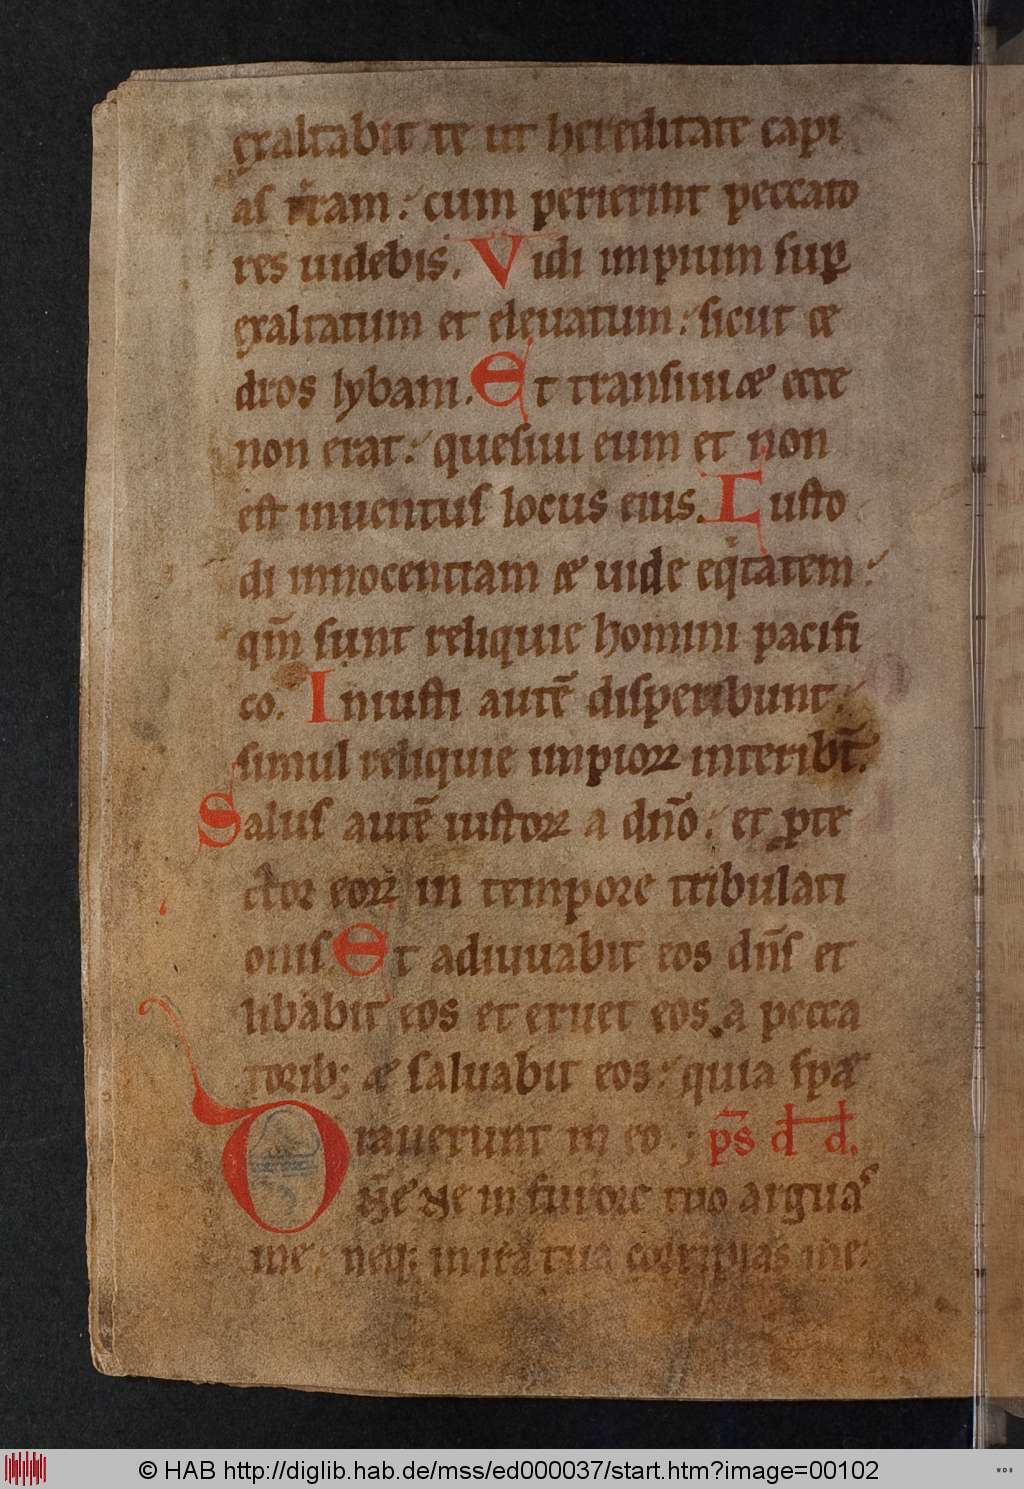 exaltabit te ut hereditate capi
as tram: cum perierint peccato
res uidebis. Vidi impium sup
exaltatum et eleuatum: sicut ce
dros lybani. Et transiui & ecce
non erat: quesiui eum et non
est inuentus locus eius. Custo
di innocentiam & uide eqitatem:
qm̄ sunt reliquie homini pacifi
co. Iniusti autē disperibunt:
simul reliquie impioꝝ interibt̄.
Salus autē iustoꝝ a dn̄o: et ꝓte
ctor eoꝝ in tempore tribulati
onis. Et adiuuabit eos dn̄s et
libabit eos et eruet eos a pecca
torib; & saluabit eos: quia spa
rauerunt in eo. p̄s dd.
Dn̄e Ne in furore tuo arguas
me: neq; in ira tua corripias me.
© HAB http://diglib.hab.de/mss/ed000037/start.htm?image=00102